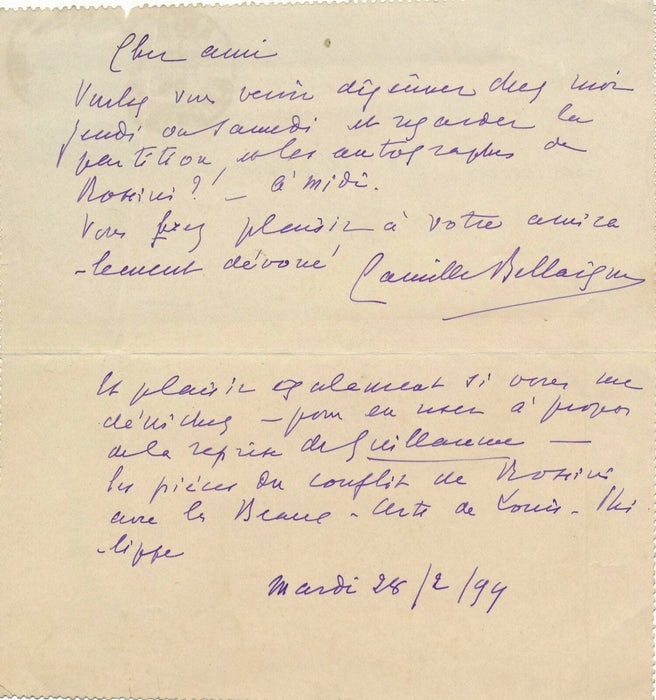 Cher ami
Voulez vous venir déjeuner chez moi
jeudi ou Samedi et regarder la
partition et les autographes de
Rossini ?! — à midi.
Vous ferez plaisir à votre amica
-lement dévoué Camille Bellaigue
Et plaisir également si vous me
dénichez — pour en user à propos
de la reprise de Guillaume —
les pièces du conflit de Rossini
avec les Beaux-Arts de Louis-Phi
-lippe
Mardi 28/2/99